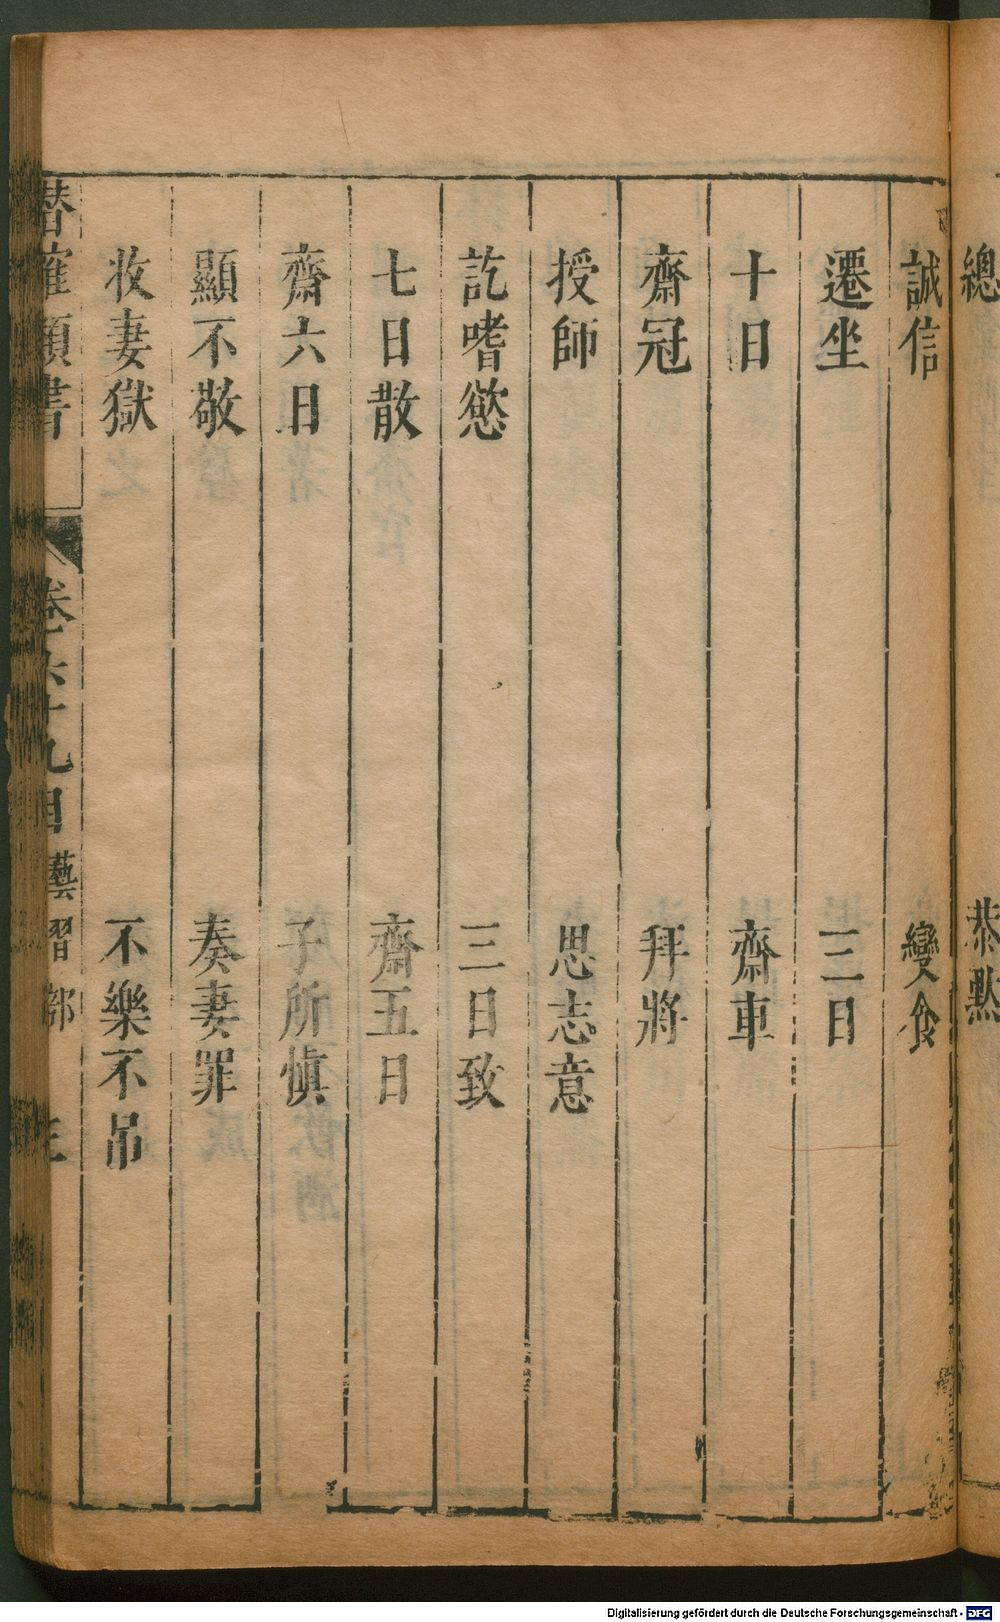 總 恭默
誠信 變食
遷坐 三日
十日 齋車
齋冠 拜將
授師 思志意
訖嗜慾 三日致
七日散 齋五日
齋六日 子所慎
顯不敬 奏妻罪
收妻獄 不樂不吊
潛確類書 卷六十九目 藝習部 三
Digitalisierung gefördert durch die Deutsche Forschungsgemeinschaft - DFG